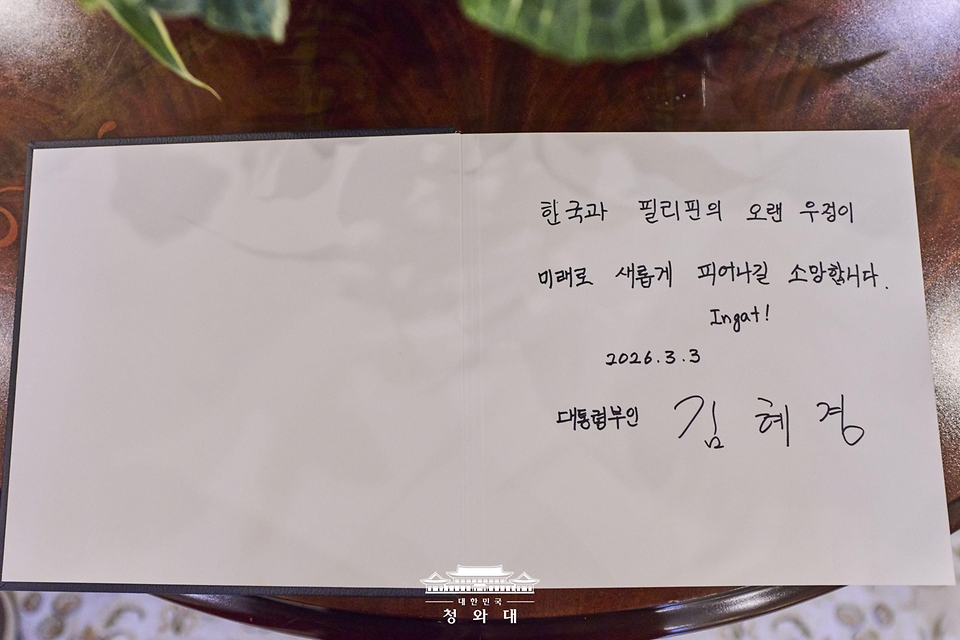 한국과 필리핀의 오랜 우정이
미래로 새롭게 피어나길 소망합니다.
Ingat!
2026.3.3
대통령부인 김혜경
대한민국
청와대